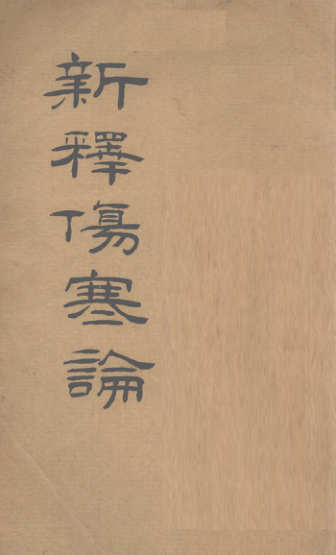 新釋傷寒論